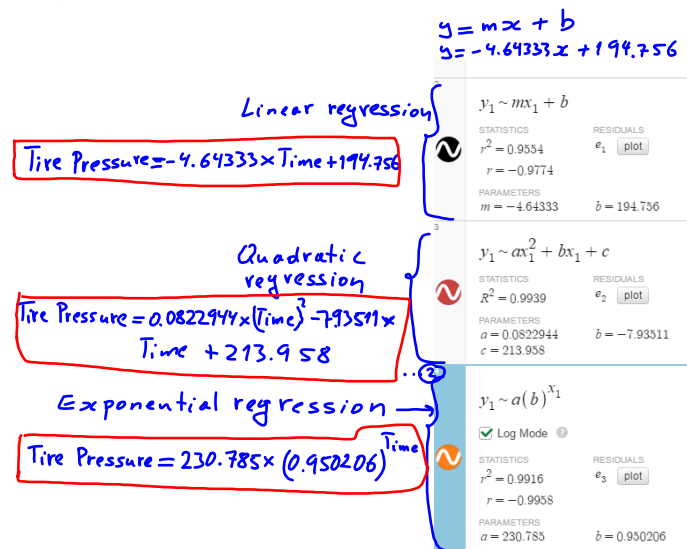 y = mx + b
y = -4.64333x + 194.756
Linear regression
Tire Pressure = -4.64333 × Time + 194.756
y₁ ~ mx₁ + b
STATISTICS RESIDUALS
r² = 0.9554 e₁ plot
r = −0.9774
PARAMETERS
m = −4.64333 b = 194.756
3
Quadratic
regression
Tire Pressure = 0.0822944 × (Time)² - 7.93511 ×
Time + 213.958
y₁ ~ ax₁² + bx₁ + c
STATISTICS RESIDUALS
R² = 0.9939 e₂ plot
PARAMETERS
a = 0.0822944 b = −7.93511
c = 213.958
..②
Exponential regression
Tire Pressure = 230.785 × (0.950206)^Time
y₁ ~ a(b)^x₁
Log Mode ?
STATISTICS RESIDUALS
r² = 0.9916 e₃ plot
r = −0.9958
PARAMETERS
a = 230.785 b = 0.950206